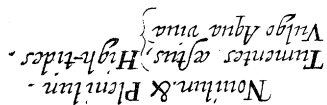 Nouilun. & Plenilun.
Tumentes æstus; } High-tides.
Vulgo Aqua viua